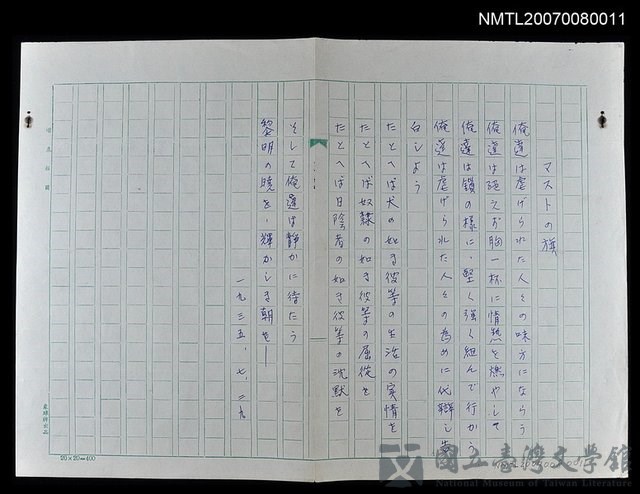 NMTL20070080011
マストの旗
俺達は虐げられた人々の味方にならう
俺達は絶えず胸一杯に情熱を燃やして
俺達は鎖の様に、堅く強く組んで行かう
俺達は虐げられた人々の為めに代辯し
白しよう
たとへば犬の如き彼等の生活の実情を
たとへば奴隷の如き彼等の屈從を
たとへば日陰者の如き彼等の沈默を
そして俺達は静かに待たう
黎明の暁を、輝かしき朝を―
一九三五、七、二九
20×20=400
國立臺灣文學館
National Museum of Taiwan Literature